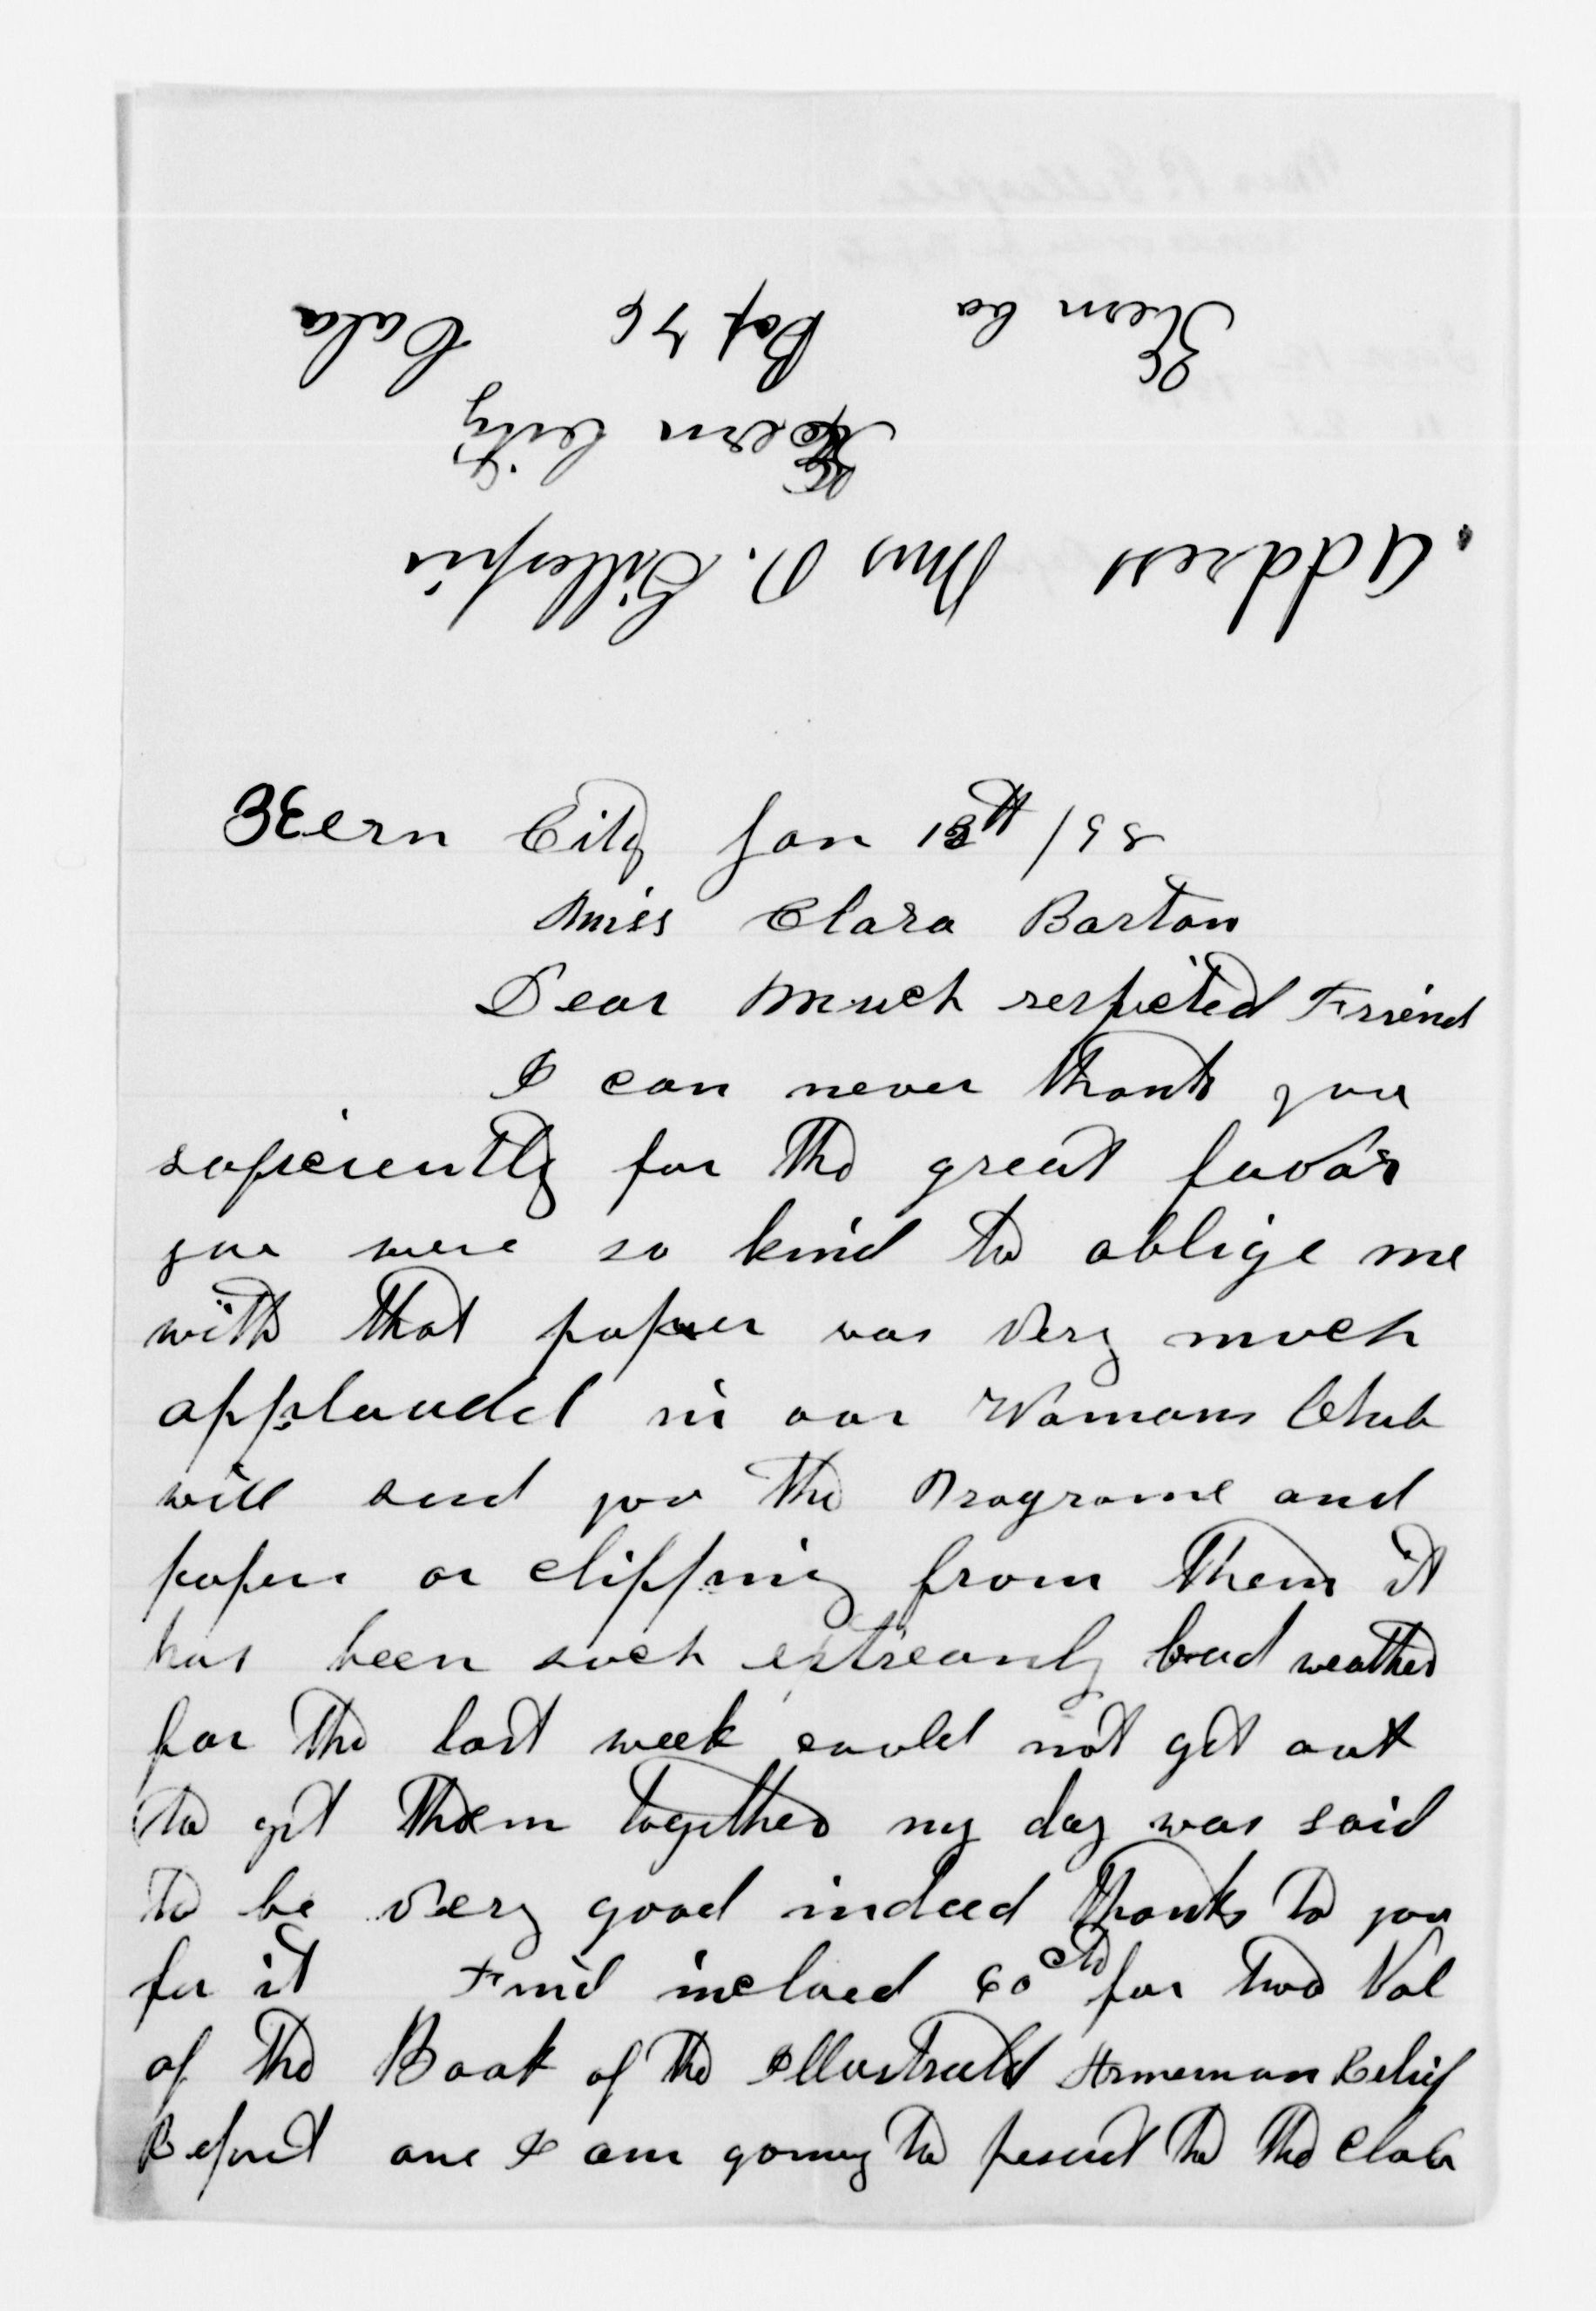 Address Mrs P. Gillespie
Kern City
Kern Co Box 76 Cala
Kern City Jan 13th /98
Miss Clara Barton
Dear much respicted Friend
I can never thank you
suficiently for the great favor
you were so kind to oblige me
with that paper was very much
applaudd in our Womans Club
will send you the Programe and
papers or clipping from them it
has been such extreamly bad weather
for the last week could not get out
to get them together my day was said
to be very good indeed thanks to you
for it Find inclued 60 cts for two Vol
of the Book of the Illustrated Armenian Relief
Report one I am going to pesent to the Club